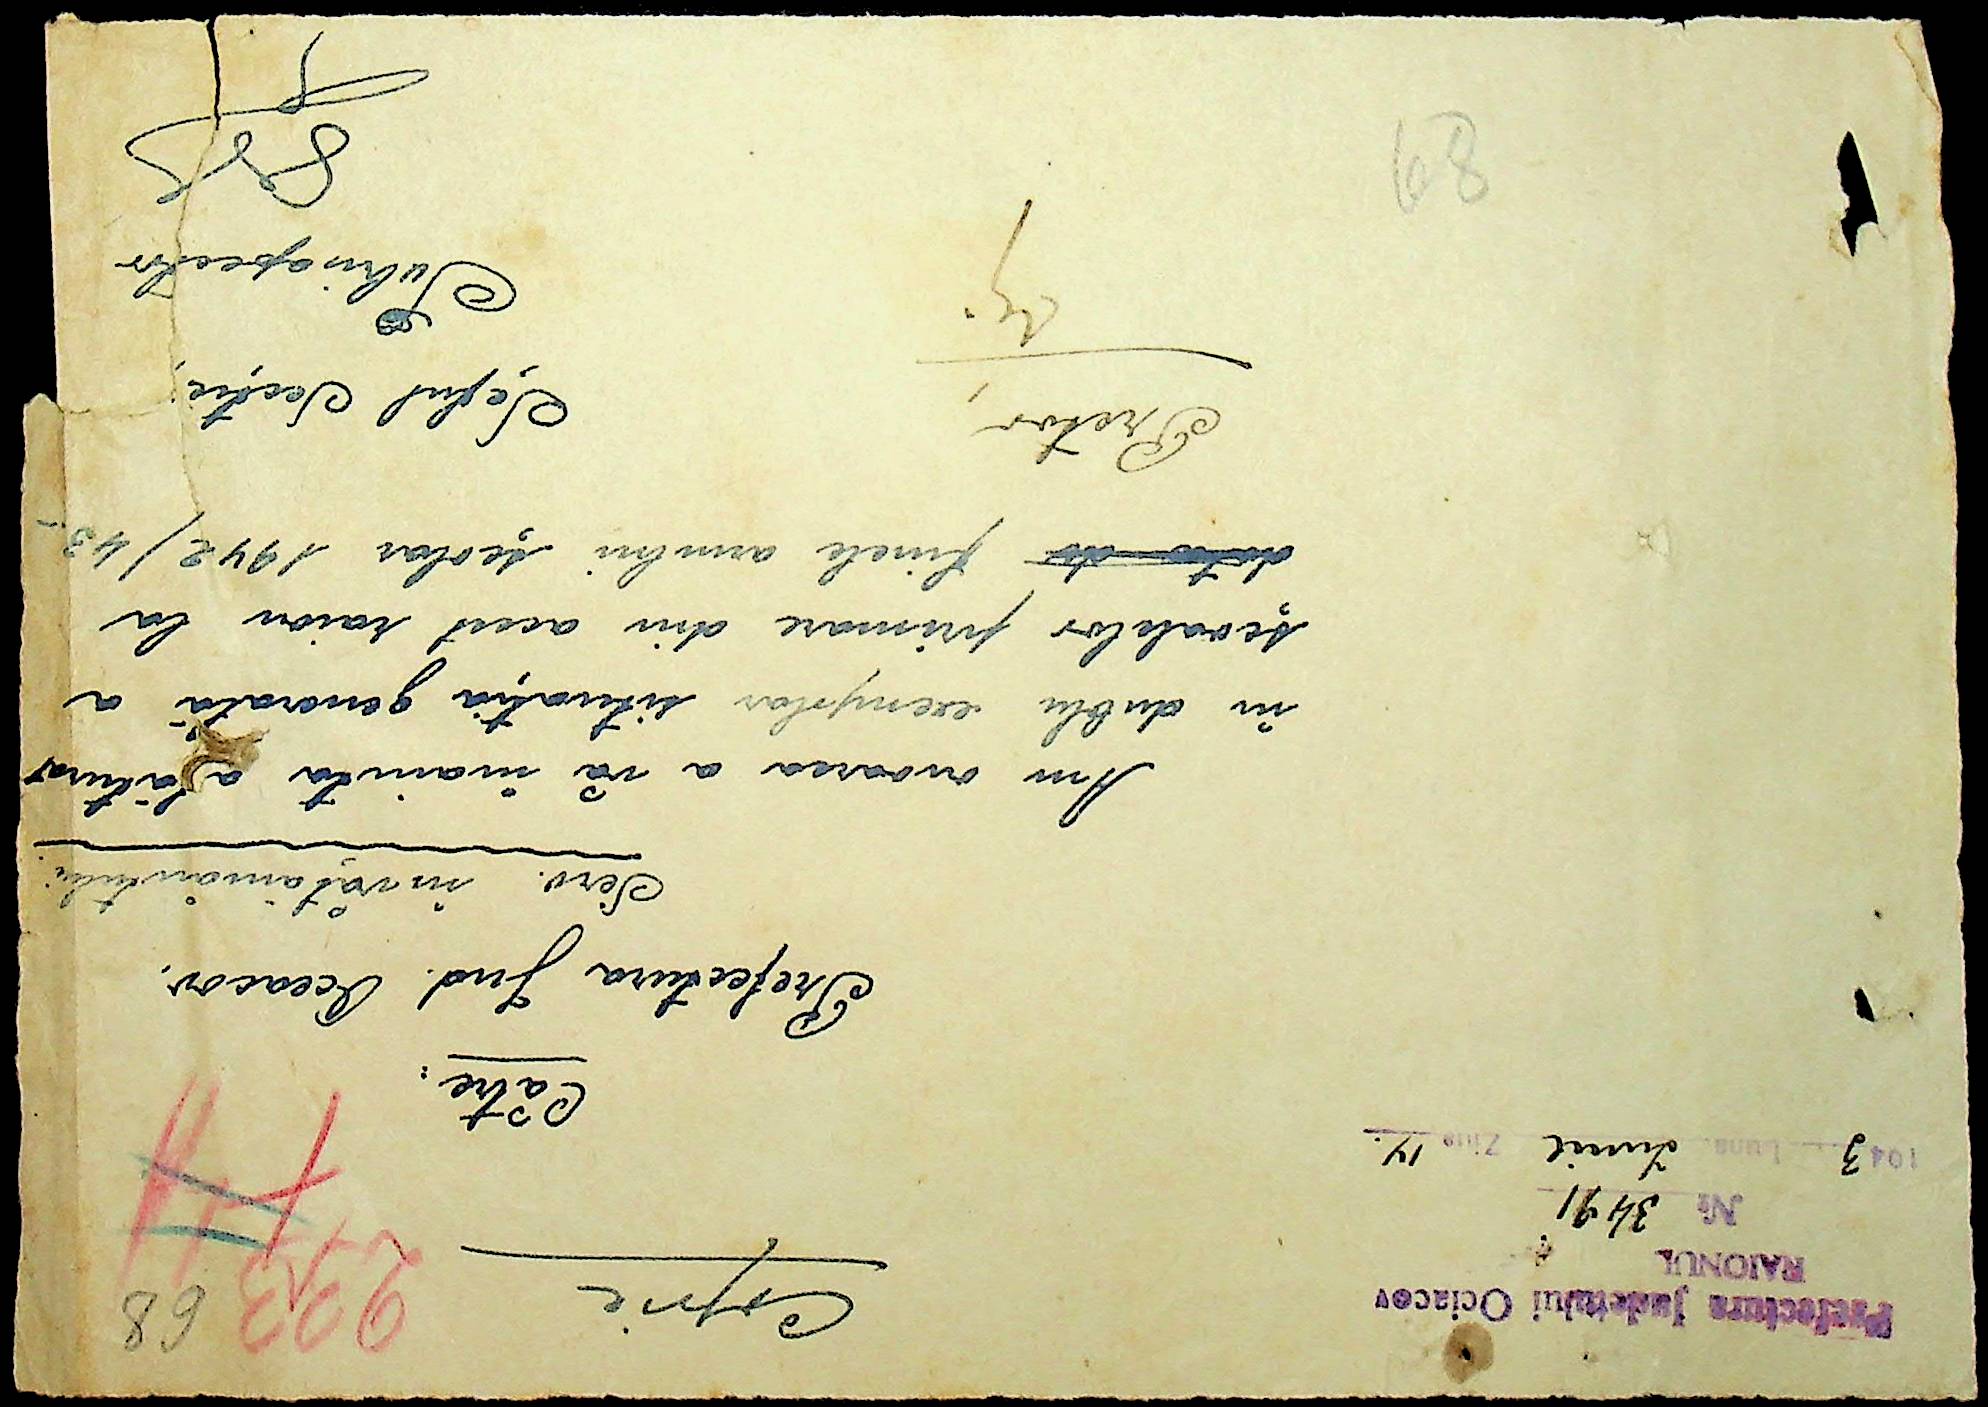 Prefectura Judetului Ociacov
RAIONUL
№ 3491
1943 Luna Iunie Ziua 14.
Copie
68
223
Către:
Prefectura Jud. Oceacov.
Serv. învățământului.
Am onoarea a vă înainta alăturat
în dublu exemplar situația generală a
școalelor primare din acest raion la
finele anului școlar 1942/43.-
Pretor,
Șeful Secție,
Subinspector
68